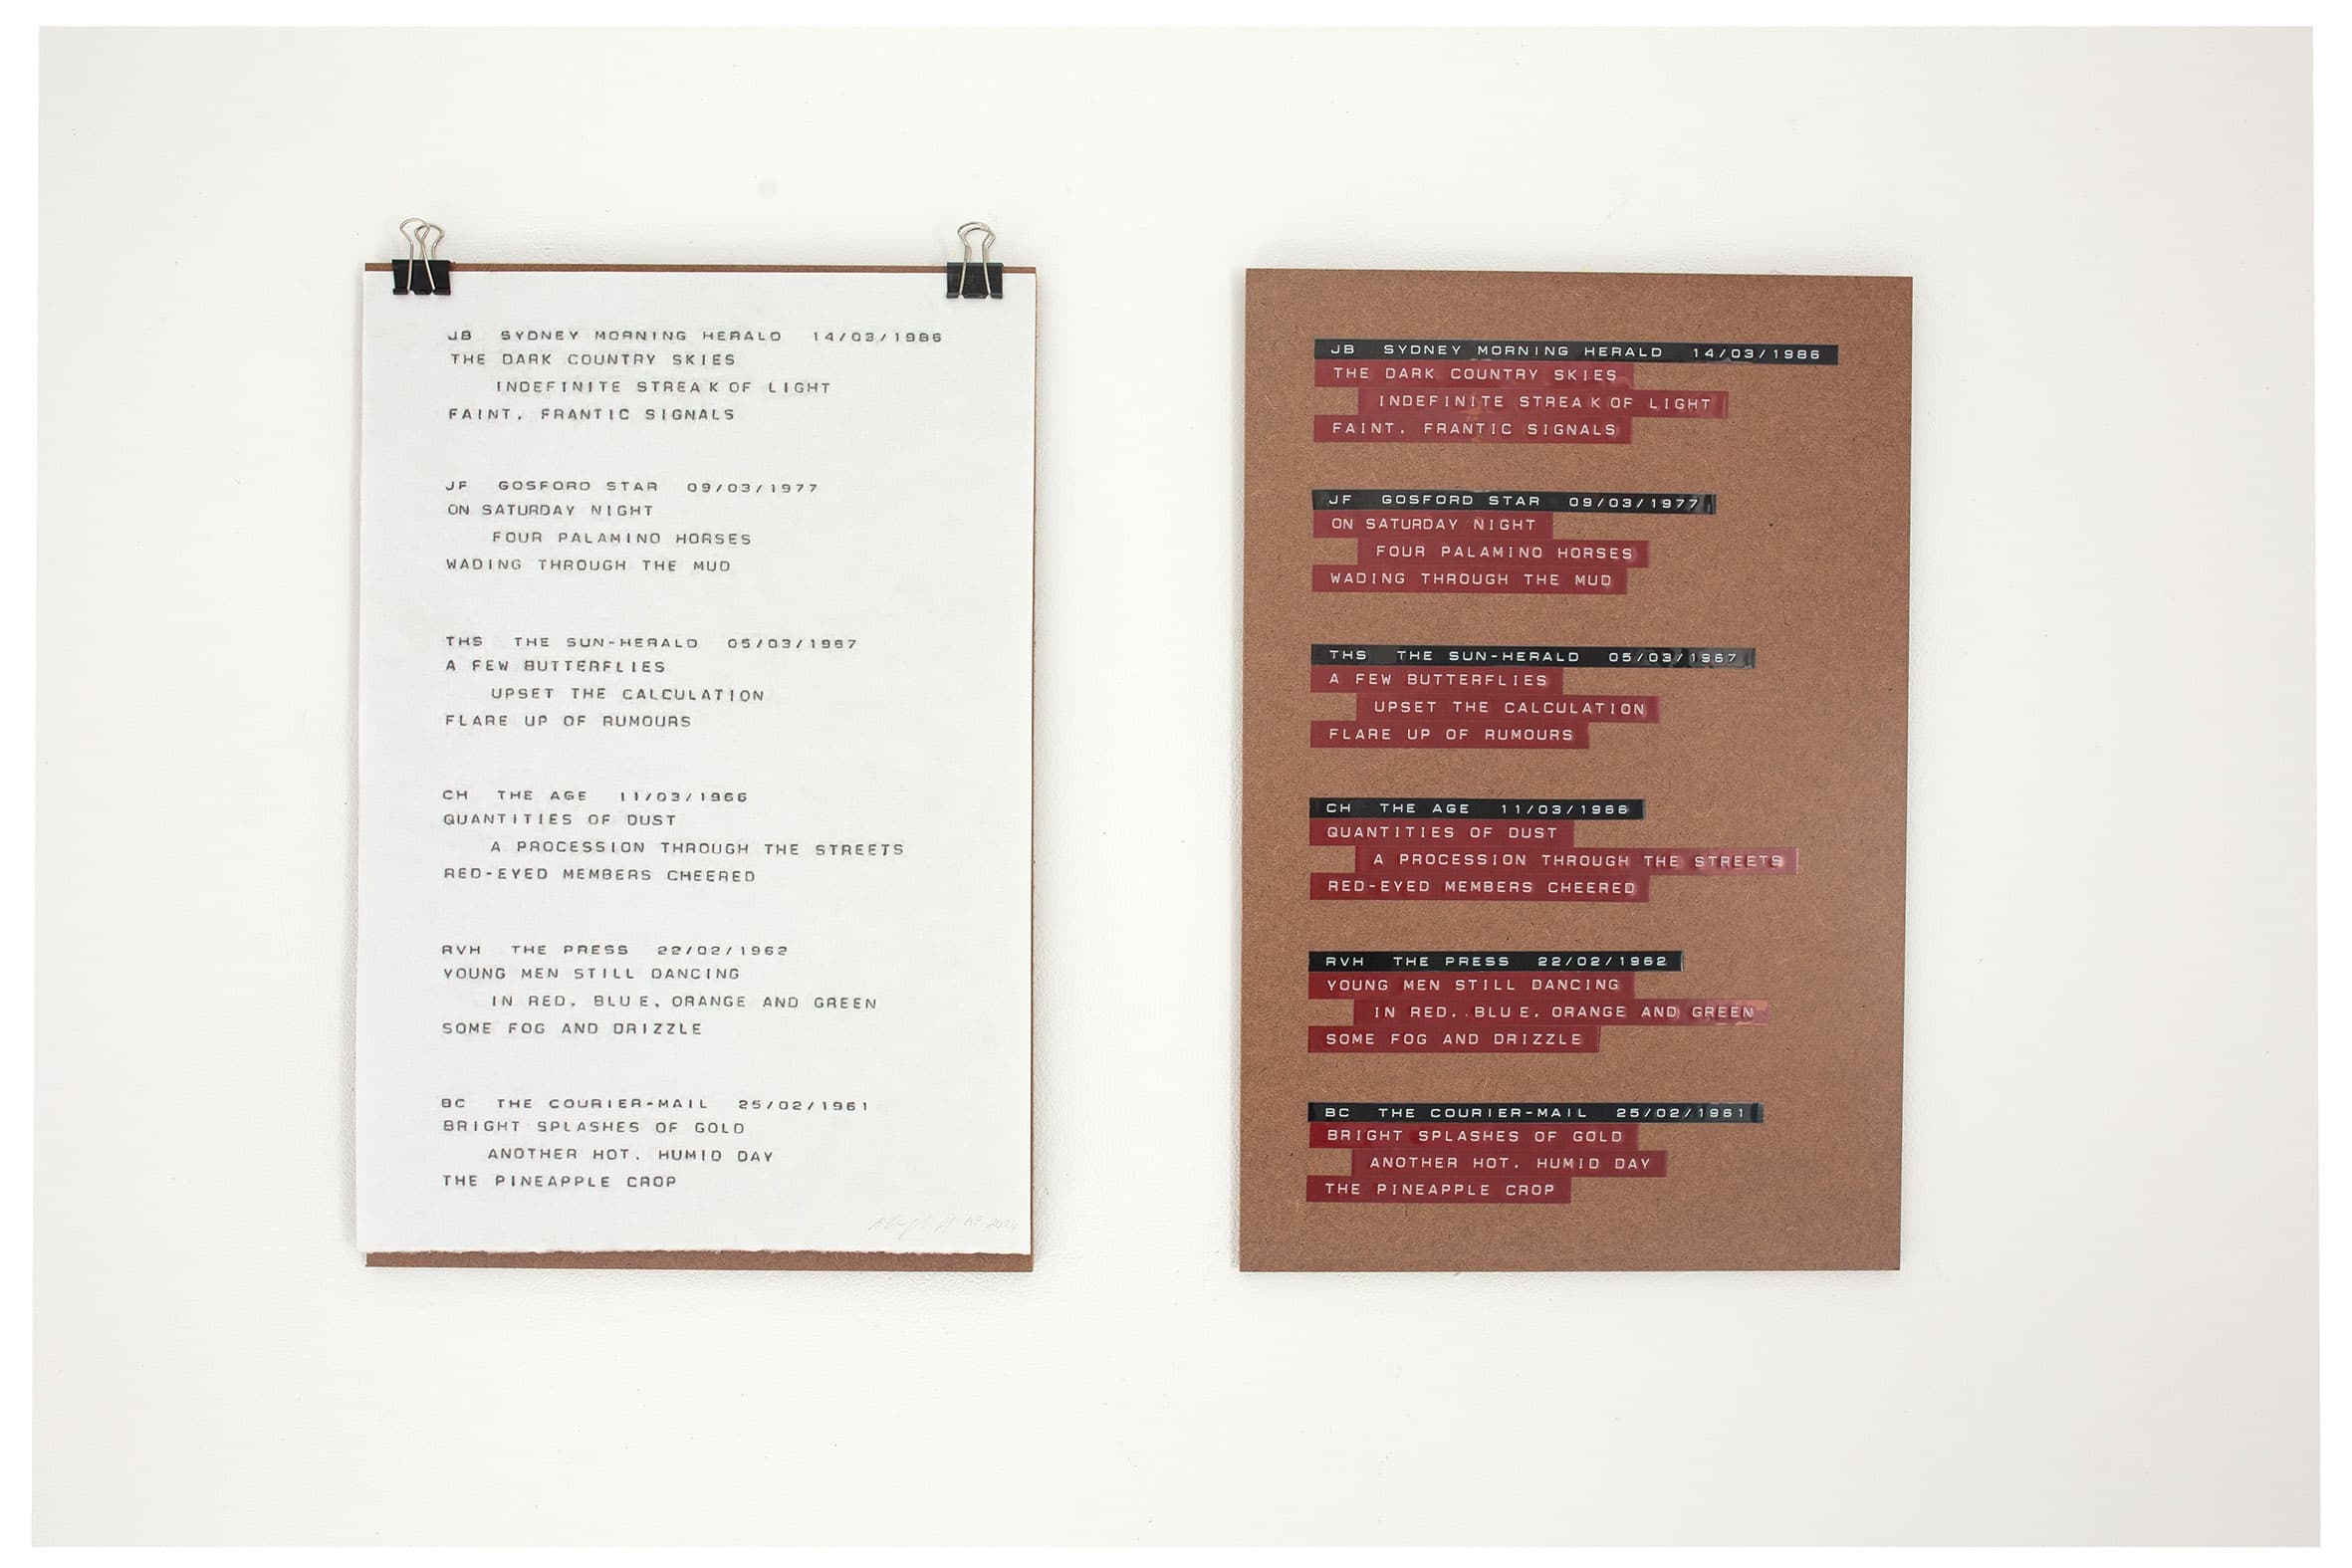 JB SYDNEY MORNING HERALD 14/03/1986
THE DARK COUNTRY SKIES
INDEFINITE STREAK OF LIGHT
FAINT, FRANTIC SIGNALS
JF GOSFORD STAR 09/03/1977
ON SATURDAY NIGHT
FOUR PALAMINO HORSES
WADING THROUGH THE MUD
THS THE SUN-HERALD 05/03/1967
A FEW BUTTERFLIES
UPSET THE CALCULATION
FLARE UP OF RUMOURS
CH THE AGE 11/03/1966
QUANTITIES OF DUST
A PROCESSION THROUGH THE STREETS
RED-EYED MEMBERS CHEERED
RVH THE PRESS 22/02/1962
YOUNG MEN STILL DANCING
IN RED, BLUE, ORANGE AND GREEN
SOME FOG AND DRIZZLE
BC THE COURIER-MAIL 25/02/1961
BRIGHT SPLASHES OF GOLD
ANOTHER HOT, HUMID DAY
THE PINEAPPLE CROP
AP 2024
JB SYDNEY MORNING HERALD 14/03/1986
THE DARK COUNTRY SKIES
INDEFINITE STREAK OF LIGHT
FAINT, FRANTIC SIGNALS
JF GOSFORD STAR 09/03/1977
ON SATURDAY NIGHT
FOUR PALAMINO HORSES
WADING THROUGH THE MUD
THS THE SUN-HERALD 05/03/1967
A FEW BUTTERFLIES
UPSET THE CALCULATION
FLARE UP OF RUMOURS
CH THE AGE 11/03/1966
QUANTITIES OF DUST
A PROCESSION THROUGH THE STREETS
RED-EYED MEMBERS CHEERED
RVH THE PRESS 22/02/1962
YOUNG MEN STILL DANCING
IN RED, BLUE, ORANGE AND GREEN
SOME FOG AND DRIZZLE
BC THE COURIER-MAIL 25/02/1961
BRIGHT SPLASHES OF GOLD
ANOTHER HOT, HUMID DAY
THE PINEAPPLE CROP